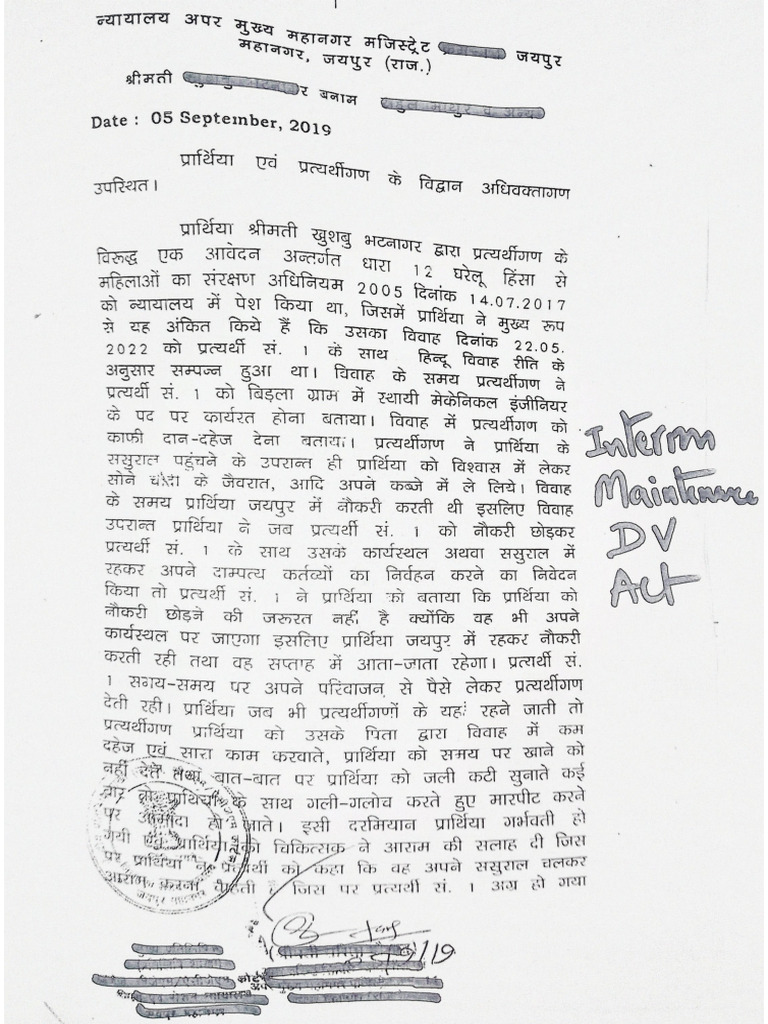 न्यायालय अपर मुख्य महानगर मजिस्ट्रेट जयपुर
महानगर, जयपुर (राज.)
श्रीमती र बनाम
Date : 05 September, 2019
प्रार्थिया एवं प्रत्यर्थीगण के विद्वान अधिवक्तागण
उपस्थित।
प्रार्थिया श्रीमती खुशबु भटनागर द्वारा प्रत्यर्थीगण के
विरूद्ध एक आवेदन अन्तर्गत धारा 12 घरेलू हिंसा से
महिलाओं का संरक्षण अधिनियम 2005 दिनांक 14.07.2017
को न्यायालय में पेश किया था, जिसमें प्रार्थिया ने मुख्य रूप
से यह अंकित किये हैं कि उसका विवाह दिनांक 22.05.
2022 को प्रत्यर्थी सं. 1 के साथ हिन्दू विवाह रीति के
अनुसार सम्पन्न हुआ था। विवाह के समय प्रत्यर्थीगण ने
प्रत्यर्थी सं. 1 को बिड़ला ग्राम में स्थायी मेकेनिकल इंजीनियर
के पद पर कार्यरत होना बताया। विवाह में प्रत्यर्थीगण को
काफी दान-दहेज देना बताया। प्रत्यर्थीगण ने प्रार्थिया के
ससुराल पहुंचने के उपरान्त ही प्रार्थिया को विश्वास में लेकर
सोने चांदी के जैवरात, आदि अपने कब्जे में ले लिये। विवाह
के समय प्रार्थिया जयपुर में नौकरी करती थी इसलिए विवाह
उपरान्त प्रार्थिया ने जब प्रत्यर्थी सं. 1 को नौकरी छोड़कर
प्रत्यर्थी सं. 1 के साथ उसके कार्यस्थल अथवा ससुराल में
रहकर अपने दाम्पत्य कर्तव्यों का निर्वहन करने का निवेदन
किया तो प्रत्यर्थी सं. 1 ने प्रार्थिया को बताया कि प्रार्थिया को
नौकरी छोड़ने की जरूरत नहीं है क्योंकि वह भी अपने
कार्यस्थल पर जाएगा इसलिए प्रार्थिया जयपुर में रहकर नौकरी
करती रही तथा वह सप्ताह में आता-जाता रहेगा। प्रत्यर्थी सं.
1 सगय-समय पर अपने परिवाजन से पैसे लेकर प्रत्यर्थीगण
देती रही। प्रार्थिया जब भी प्रत्यर्थीगणों के यहां रहने जाती तो
प्रत्यर्थीगण प्रार्थिया को उसके पिता द्वारा विवाह में कम
दहेज एवं सारा काम करवाते, प्रार्थिया को समय पर खाने को
नहीं देते तथा बात-बात पर प्रार्थिया को जली कटी सुनाते कई
बार तो प्रार्थिया के साथ गली-गलोच करते हुए मारपीट करने
पर आमादा हो जाते। इसी दरमियान प्रार्थिया गर्भवती हो
गयी एवं प्रार्थिया को चिकित्सक ने आराम की सलाह दी जिस
पर प्रार्थिया ने प्रत्यर्थी को कहा कि वह अपने ससुराल चलकर
आराम करना चाहती है जिस पर प्रत्यर्थी सं. 1 अग्र हो गया
Interm
Maintenance
DV
Act